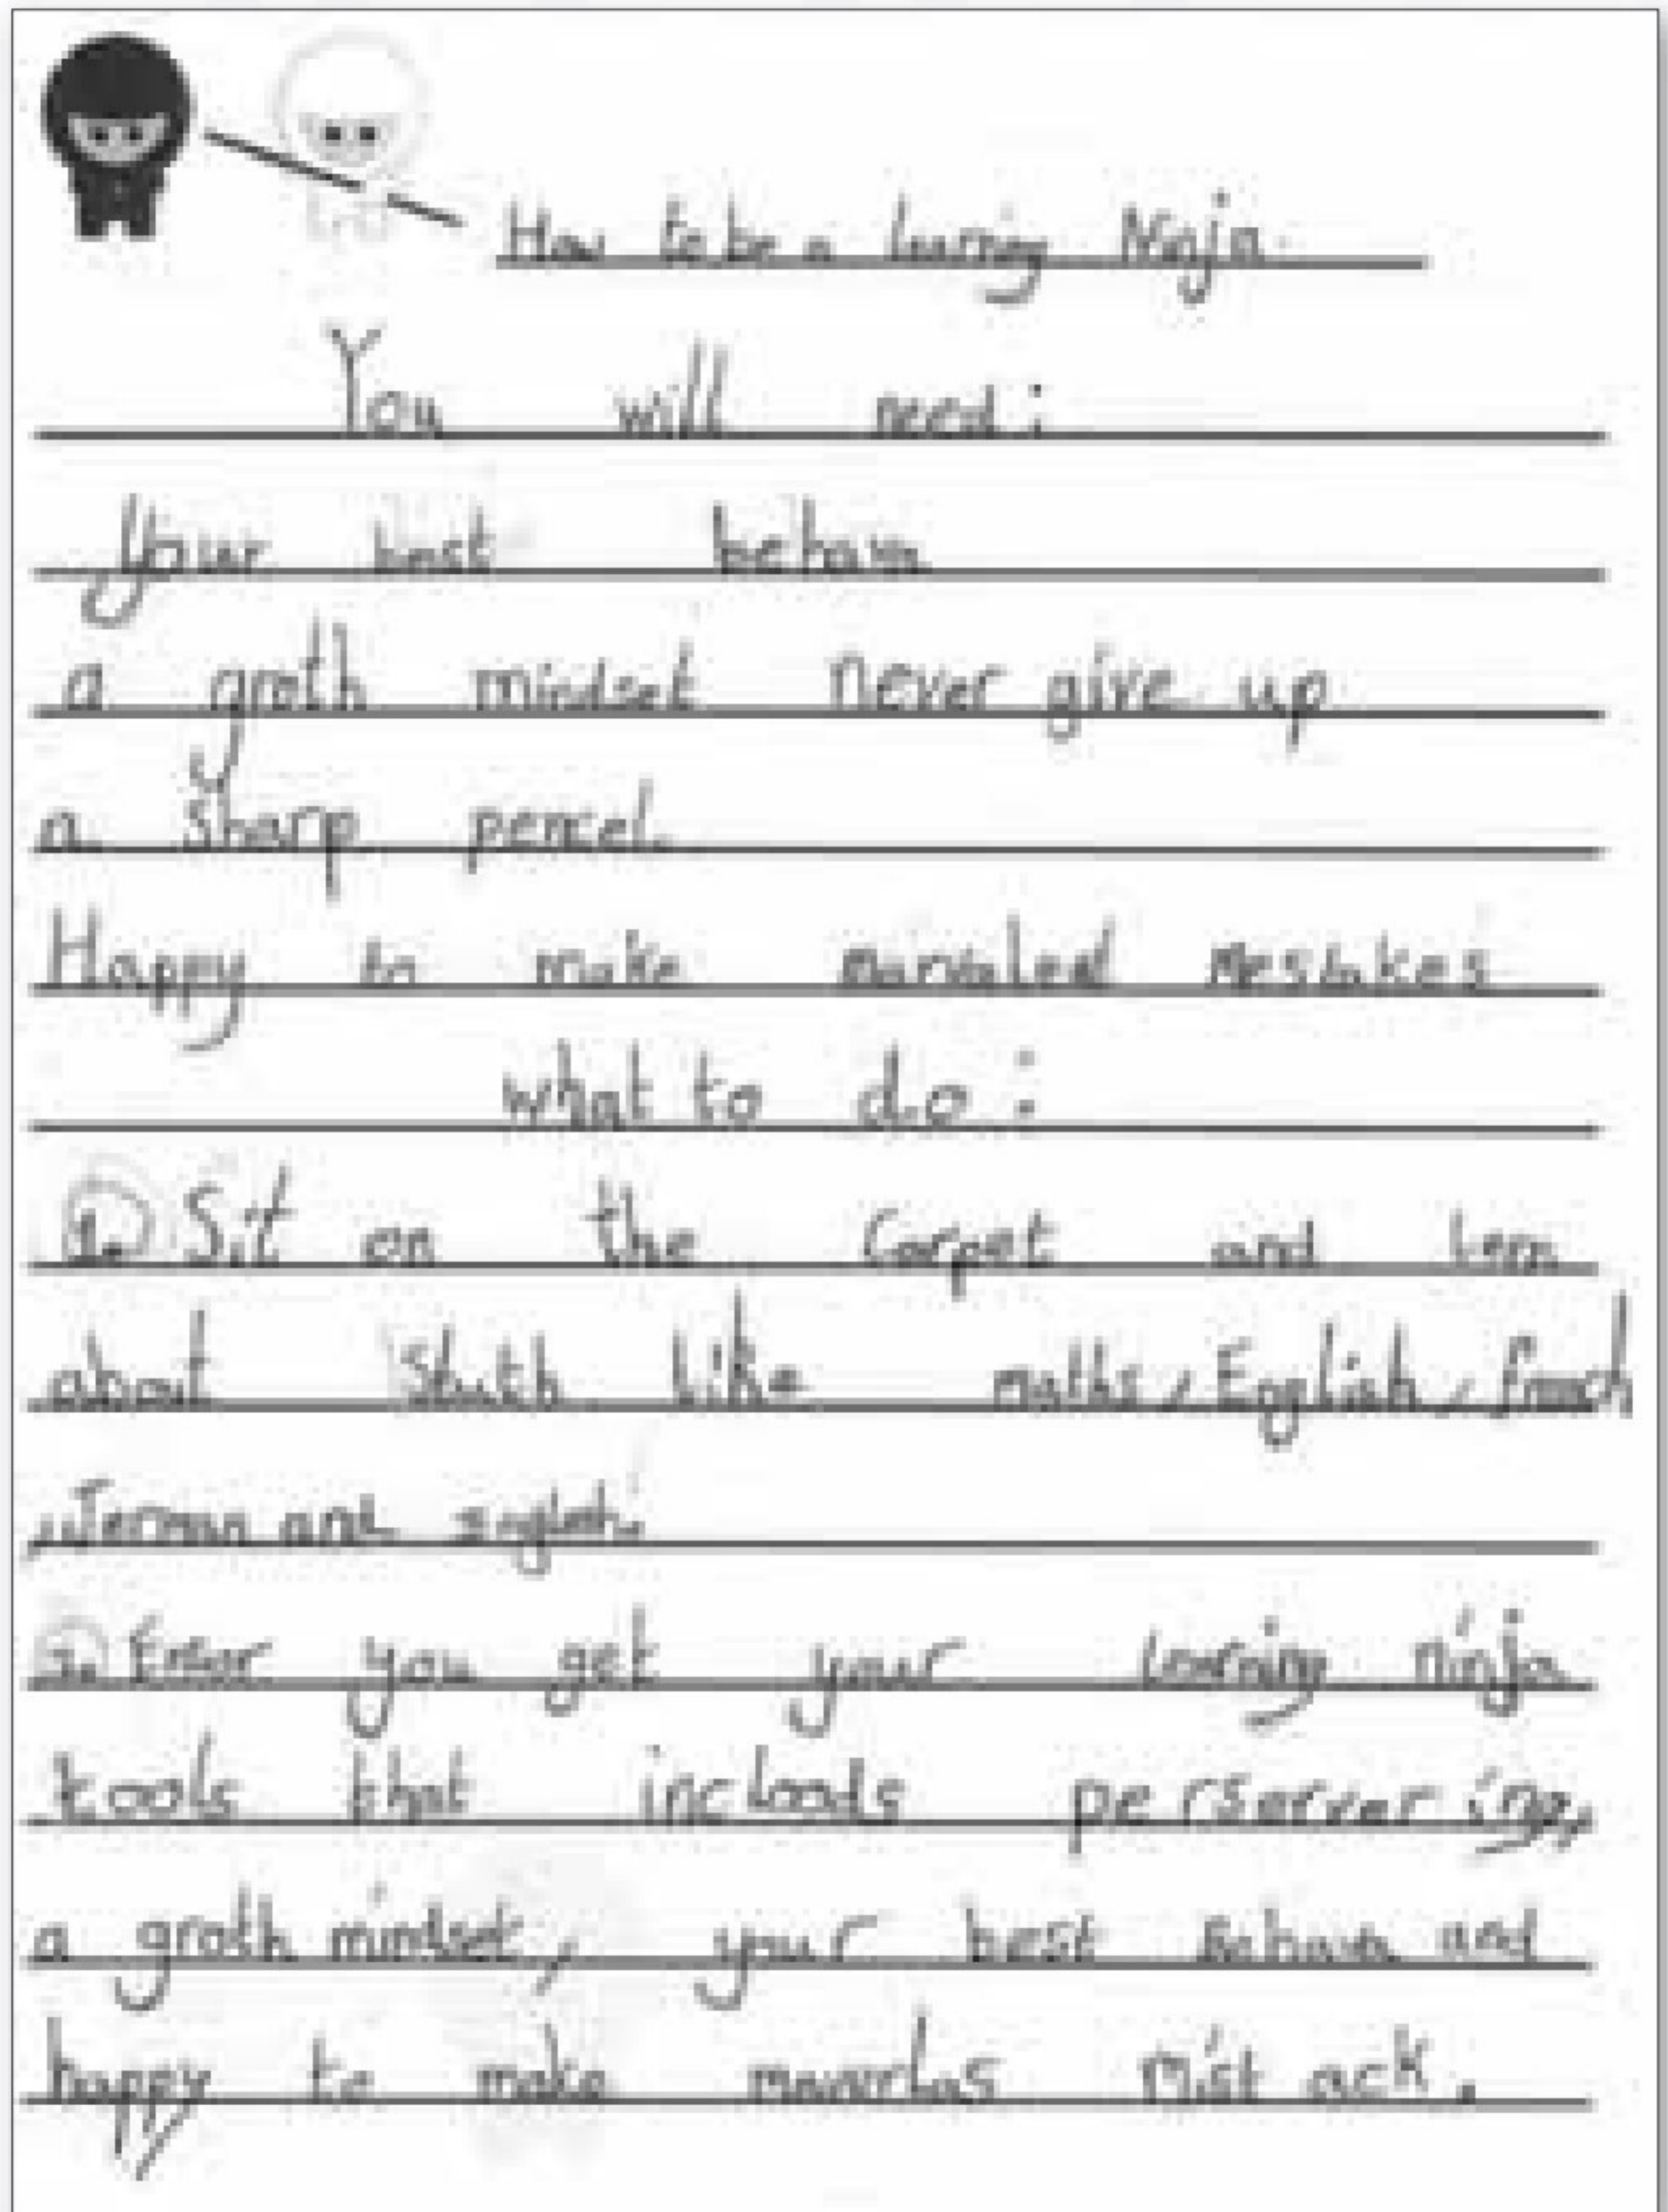 How to be a learning Ninja
You will need:
Your best behave
a groth mindset never give up
a sharp pencel.
Happy to make mestakes
what to do:
1. Sit on the Carpet and lern
about like maths, English, french
, Jerman and
2. you get your learning ninja
tools that incloods perservering,
a groth mindset, your best and
happy to make mist ack.